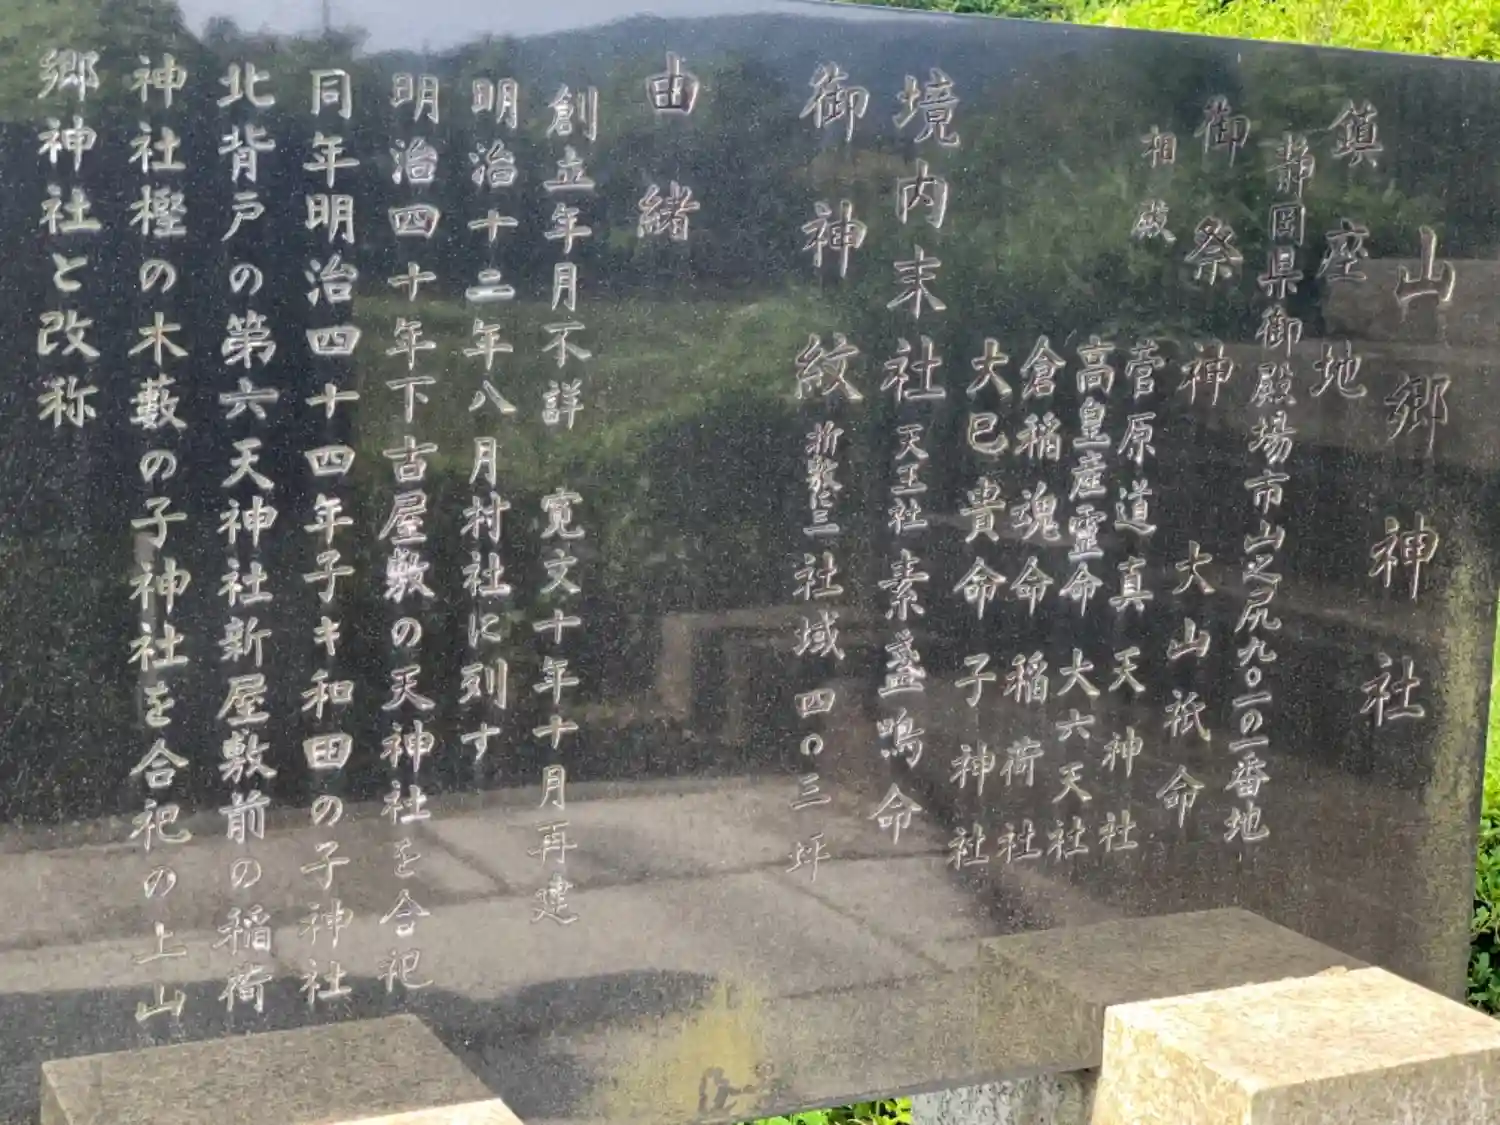 山郷神社
鎮座地
静岡県御殿場市山之尻九〇一の一番地
御祭神 大山祇命
相殿
菅原道真 天神社
高皇産霊命 大六天社
倉稲魂命 稲荷社
大巳貴命 子神社
境内末社 天王社 素盞鳴命
御神紋 折敷に三 社域 四〇三坪
由緒
創立年月不詳 寛文十年十月再建
明治十二年八月村社に列す
明治四十年下古屋敷の天神社を合祀
同年明治四十四年子キ和田の子神社
北背戸の第六天神社新屋敷前の稲荷
神社樫の木藪の子神社を合祀の上山
郷神社と改称